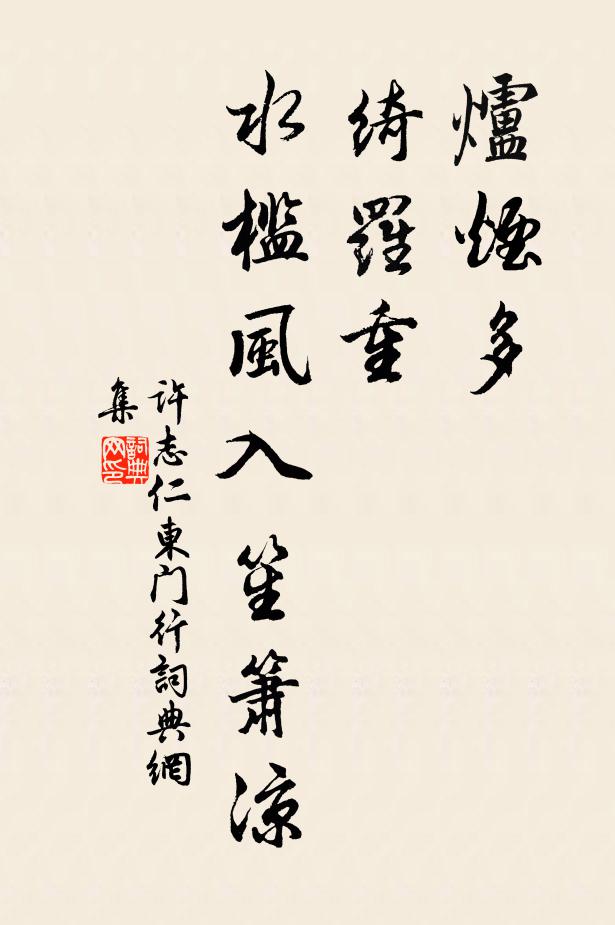 爐煙多
綺羅重
水檻風入笙簫涼
許志仁東门行詞典網
集
詞典网印